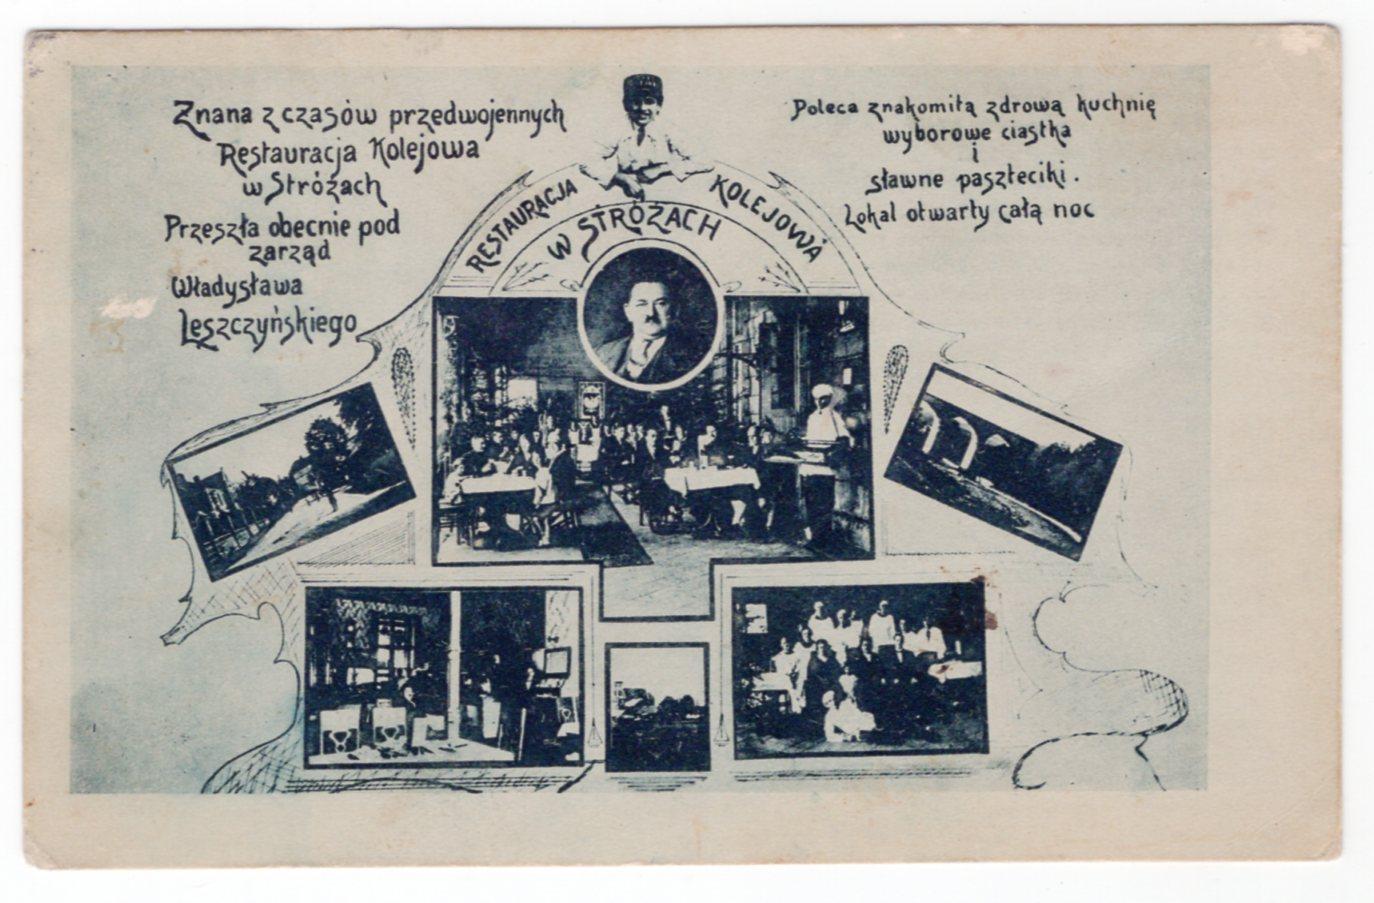 Znana z czasów przedwojennych
Restauracja Kolejowa
w Stróżach
Przeszła obecnie pod
zarząd
Władysława
Leszczyńskiego
Poleca znakomitą zdrową kuchnię
wyborowe ciastka
i
sławne paszteciki.
Lokal otwarty całą noc
RESTAURACJA KOLEJOWA
W STRÓŻACH